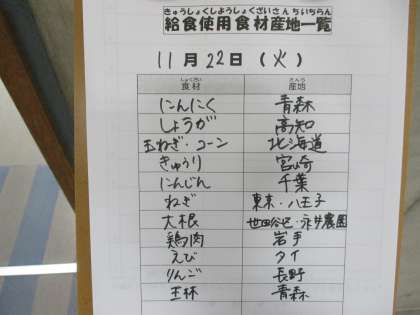 きゅうしょくしようしょくざいさんちいちらん
給食使用食材産地一覧
11月22日(火)
しょくざい さんち
食材 産地
にんにく 青森
しょうが 高知
玉ねぎ・コーン 北海道
きゅうり 宮崎
にんじん 千葉
ねぎ 東京・八王子
大根 世田谷区・永井農園
鶏肉 岩手
えび タイ
りんご 長野
王林 青森